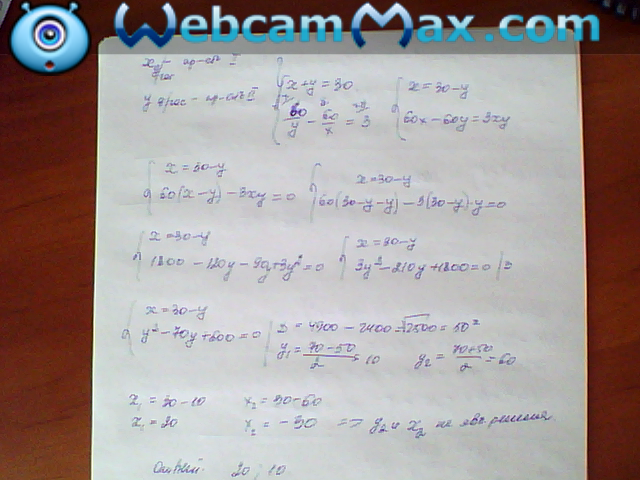 WebcamMax.com
x+y=30
60/y - 60/x = 3
x=30-y
60x-60y=3xy
x=30-y
60(x-y)-3xy=0
x=30-y
60(30-y-y)-3(30-y)·y=0
x=30-y
1800-120y-90y+3y²=0
x=30-y
3y²-210y+1800=0 |:3
x=30-y
y²-70y+600=0
D = 4900-2400=√2500=50²
y₁=(70-50)/2=10
y₂=(70+50)/2=60
x₁=30-10
x₂=30-60
x₁=20
x₂=-30 => y₂ и x₂ не явл решения
Ответ: 20; 10